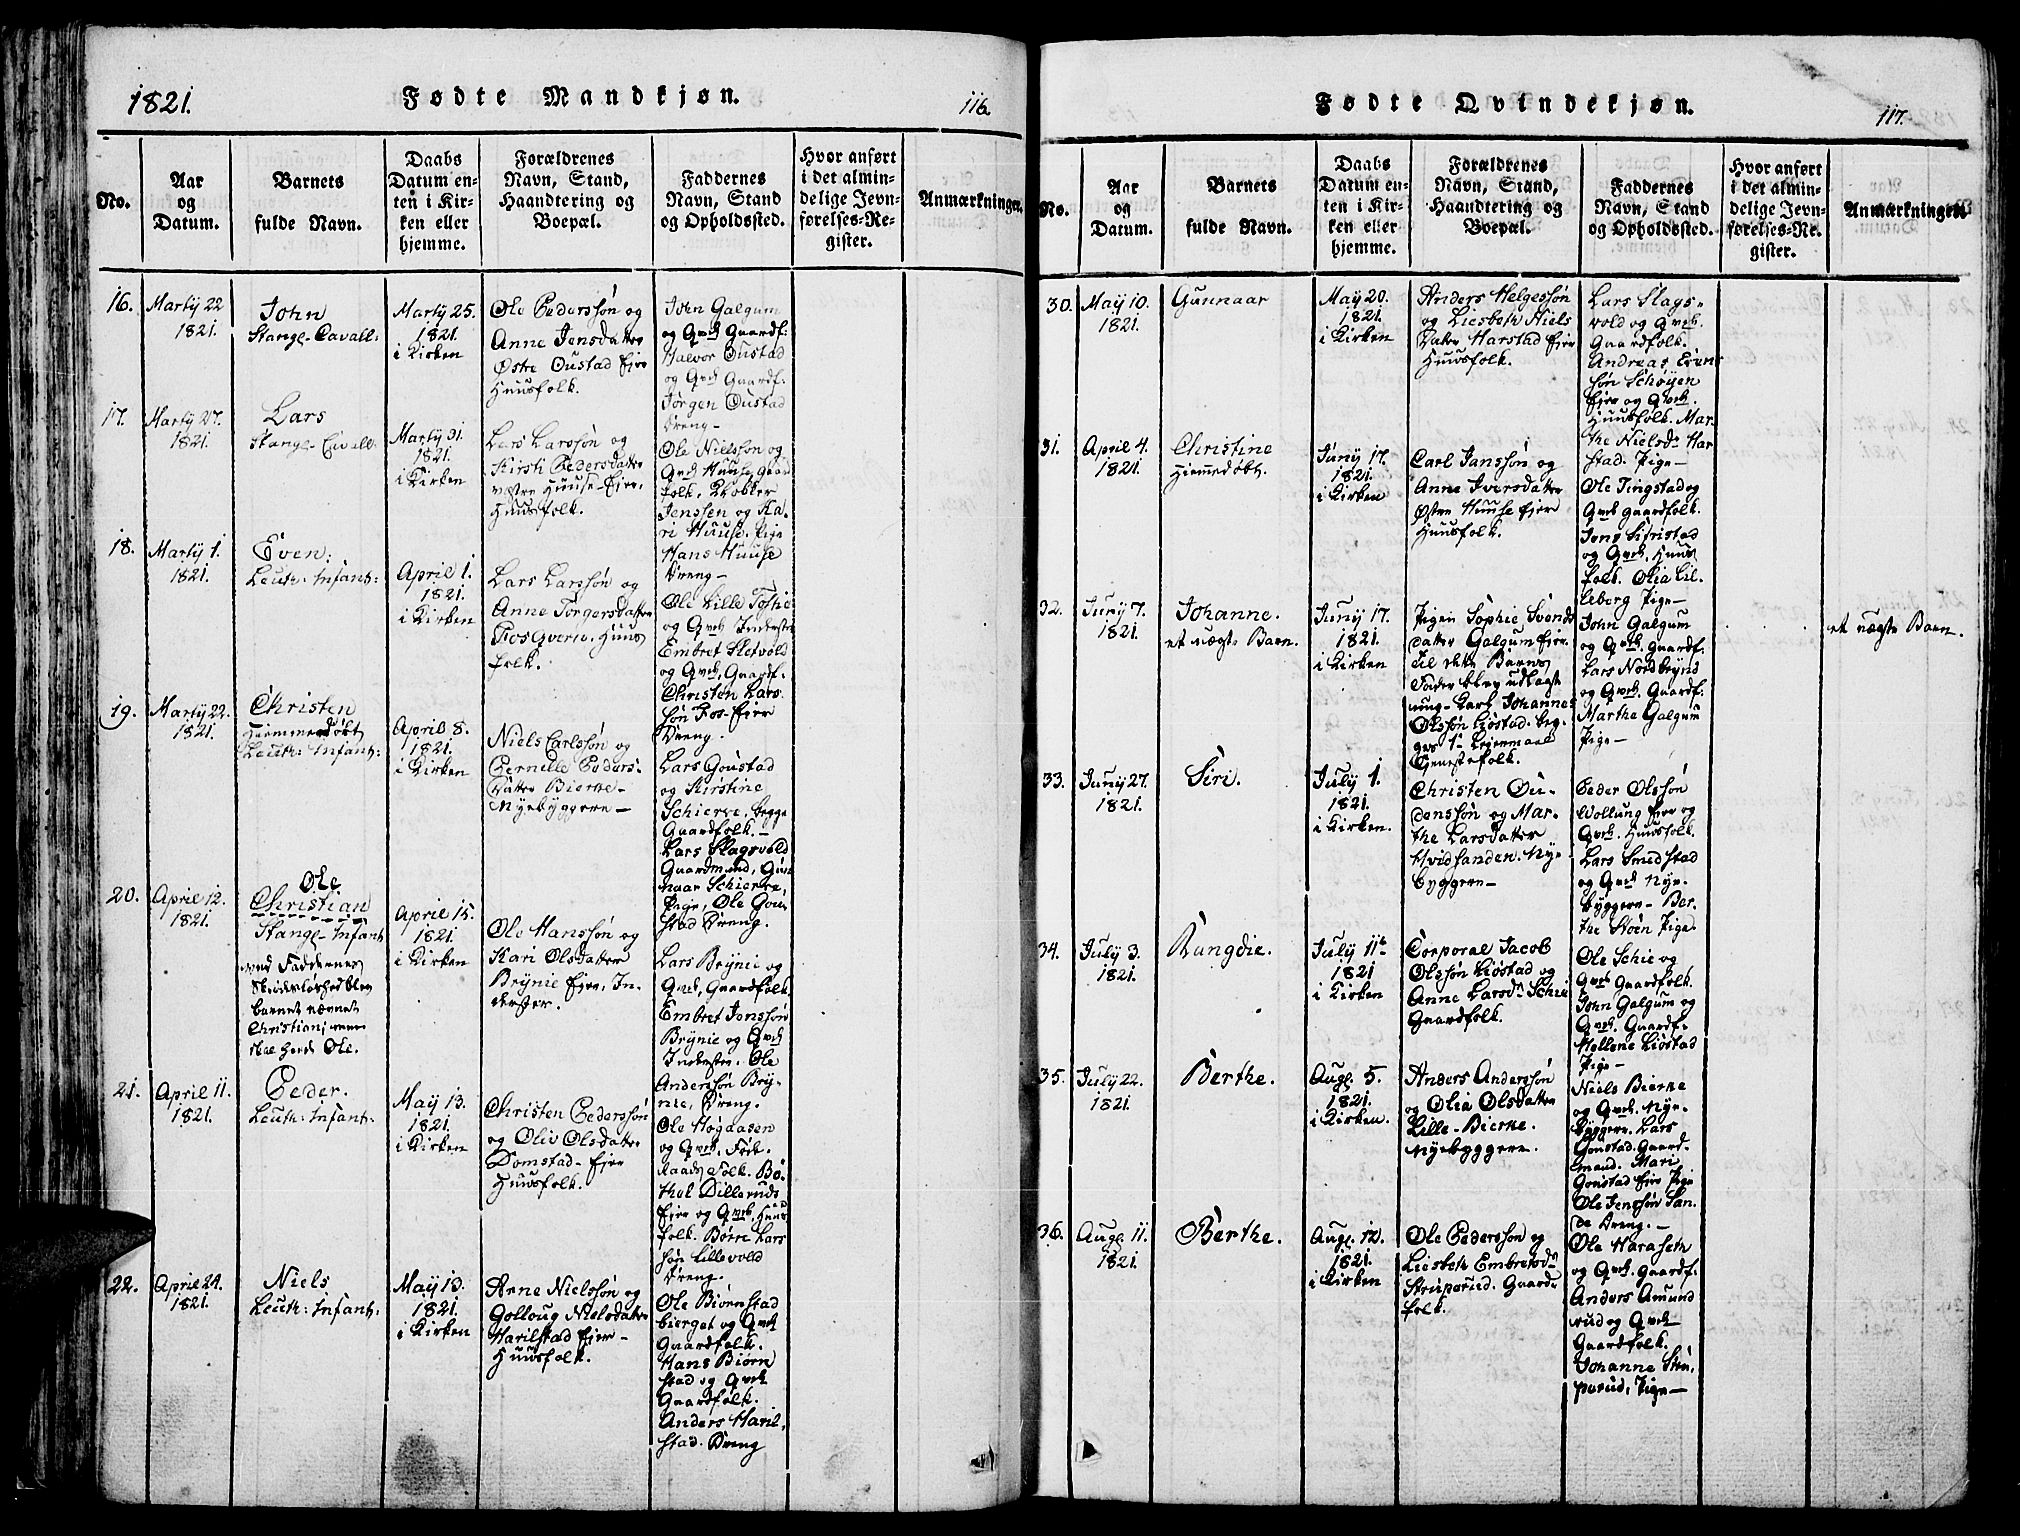 1821.
Fødte Mandkjøn.
116.
No.
Aar
og
Datum.
Barnets
fulde Navn.
Daabs
Datum en-
ten i Kir-
ken eller
hjemme.
Forældrenes
Navn, Stand,
Haandtering og
Boepæl.
Faddernes
Navn, Stand
og Opholdssted.
Hvor anført
i det almin-
delige Jevn-
førelses-Re-
gister.
Anmærkninger.
16.
Martÿ 22
1821.
John
Stange-Cavall:
Martÿ 25.
1821.
i Kirken
Ole Pederssøn og
Anne Jensdatter
Østre Oustad Eje
Huusfolk.
John Galgum
og Qvek Gaardf:
Halvor Oustad
og Qvek Gaardf.
Jørgen Oustad
Dreng-
17.
Martÿ 27.
1821.
Lars
Stange-Cavall:
Martÿ 31.
1821.
i Kirken
Lars Larssøn og
Kirsti Pedersdatter
vestre Huuse-Eje.
Huusfolk.
Ole Nielssøn og
Qvek Huuse gaard
folk,
Jenssen og Ka,
ri Huuse, Pige
Hans Huuse
Dreng-
18.
Martÿ 1.
1821.
Even:
Leuth: Infant:
April 1.
1821.
i Kirken
Lars Larssøn og
Anne Torgersdatter
Huus
folk.
Ole Lille
og Qvek Inderster
Embret Sletvold
og Qvek, Gaardf.
Christen Lars-
søn Fos-Ejer
Dreng.
19.
Martÿ 22.
1821.
Christen
Hiemmedøbt
Leuth: Infant:
April 8.
1821.
i Kirken
Niels Carlssøn og
Pernille Peders-
Datter Bierke-
Nyebyggere-
Lars Goustad
og Kirstine
Schierre, begge
Gaardfolk.-
Lars Slagsvold
Gaardmand, Gun
naar Schierre,
Pige, Ole Gou
stad Dreng.
20.
April 12.
1821.
Ole
Christian
Stange-Infant
ved Faddernes
barnet nævnet
Christian; men
skal hede Ole.
April 15.
1821.
i Kirken
Ole Hanssøn og
Kari Olsdatter
Brÿnie Ejer, In-
derster.
Lars Brÿnie og
Qvek, Gaardfolk
Embret Jonssøn
Brÿnie og Qvek
Inderster. Ole
Anderssøn Brÿ-
nie, Dreng.
21.
April 11.
1821.
Peder.
Leuth: Infant:
Maÿ 13.
1821.
i Kirken
Christen Pederssøn
og Oliv Olsdatter
Domstad-Ejer
Huusfolk.
Ole Hogaasen
og Qvek. Føde-
raads Folk. Bó
thol Dilleruds
Ejer og Qvek. Huus
folk. Børre Lars
søn Lillevold
Dreng.
22.
April 24.
1821.
Niels
Leuth: Infant:
Maÿ 13.
1821.
i Kirken
Arne Nielssøn og
Golloug Nielsdatter
Harilstad Ejer-
Huusfolk.
Ole Biørnstad
bierget og Qvek
Gaardfolk.
Hans Biørn
stad og Qvek
Gaardfolk.
Anders Haril,
stad. Dreng
Fødte Qvindekjøn.
117.
No.
Aar
og
Datum.
Barnets
fulde Navn.
Daabs
Datum en-
ten i Kir-
ken eller
hjemme.
Forældrenes
Navn, Stand,
Haandtering og
Boepæl.
Faddernes
Navn, Stand
og Opholdssted.
Hvor anført
i det almin-
delige Jevn-
førelses-Re-
gister.
Anmærkninger.
30.
Maÿ 10.
1821.
Gunnaar
Maÿ 20.
1821.
i Kirken
Anders Helgessøn
og Liesbeth Niels
Datter Harstad Ejer
Huusfolk.
Lars Slags-
vold og Qvek.
Gaardfolk.
Andreas Evens
søn Schøyen
Ejer og Qvek.
Huusfolk. Mar
the Nielsdr Har
stad. Pige-
31.
April 4.
1821.
Christine
Hiemmedøbt.
Junÿ 17.
1821.
i Kirken
Carl Janssøn og
Anne Iversdatter
Østre Huuse Ejer
Huusfolk.
Ole Tingstad og
Qvek gaardfolk.
Jens Sifristad
og Qvek. Huus
folk. Olia Lil-
leborg Pige-
32.
Junÿ 7.
1821.
Johanne.
et uægte Barn.
Junÿ 17.
1821.
i Kirken
Pigen Sophie Svends
datter Galgum Ejer.
til dette Barns
Fader blev udlagt
ung-Karl Johannes
Olssøn Liøstad. beg-
ges 1te Leiermaal
Tienestefolk.
John Galgum
og Qvek. Gaardf.
Lars Nordbrÿnd
og Qvek. Gaardf.
Marthe Galgum
Pige-
et uægte Barn.
33.
Junÿ 27.
1821.
Siri.
Julÿ 1.
1821.
i Kirken.
Christen Ou-
denssøn og Mar-
the Larsdatter
Hvidsanden. Ny-
byggere-
Peder Olssøn
Wollung Ejer og
Qvek. Huusfolk.
Lars Smedstad
og Qvek Nye-
byggere-Ber-
the Støen Pige.
34.
Julÿ 3.
1821.
Rangdie.
Julÿ 11te
1821
i Kirken
Corporal Jacob
Olssøn Liøstad og
Anne Larsdr Schie
Gaardfolk.
Ole Schie og
Qvek Gaardfolk.
John Galgum og
Qvek. Gaardf-
Hellene Liøstad
Pige-
35.
Julÿ 22.
1821.
Berthe.
Augl. 5.
1821.
i Kirken.
Anders Anderssøn
og Olia Olsdatter
Lille-Bierke.
Nyebyggere.
Niels Bierke
og Qvek. Nye-
byggere. Lars
Goustad. Gaard-
mand. Mari
Goustad Ejer Pige
Ole Jenssøn San-
de Dreng.-
36.
Augl. 11.
1821.
Berthe.
Augl. 12.
1821.
i Kirken
Ole Pederssøn og
Liesbeth Embretsdr
Struperud. Gaards
folk.
Ole Haraseth
og Qvek. Gaardf.
Anders Amund
rud og Qvek
Gaardfolk.
Johanne Stru,
perud, Pige-